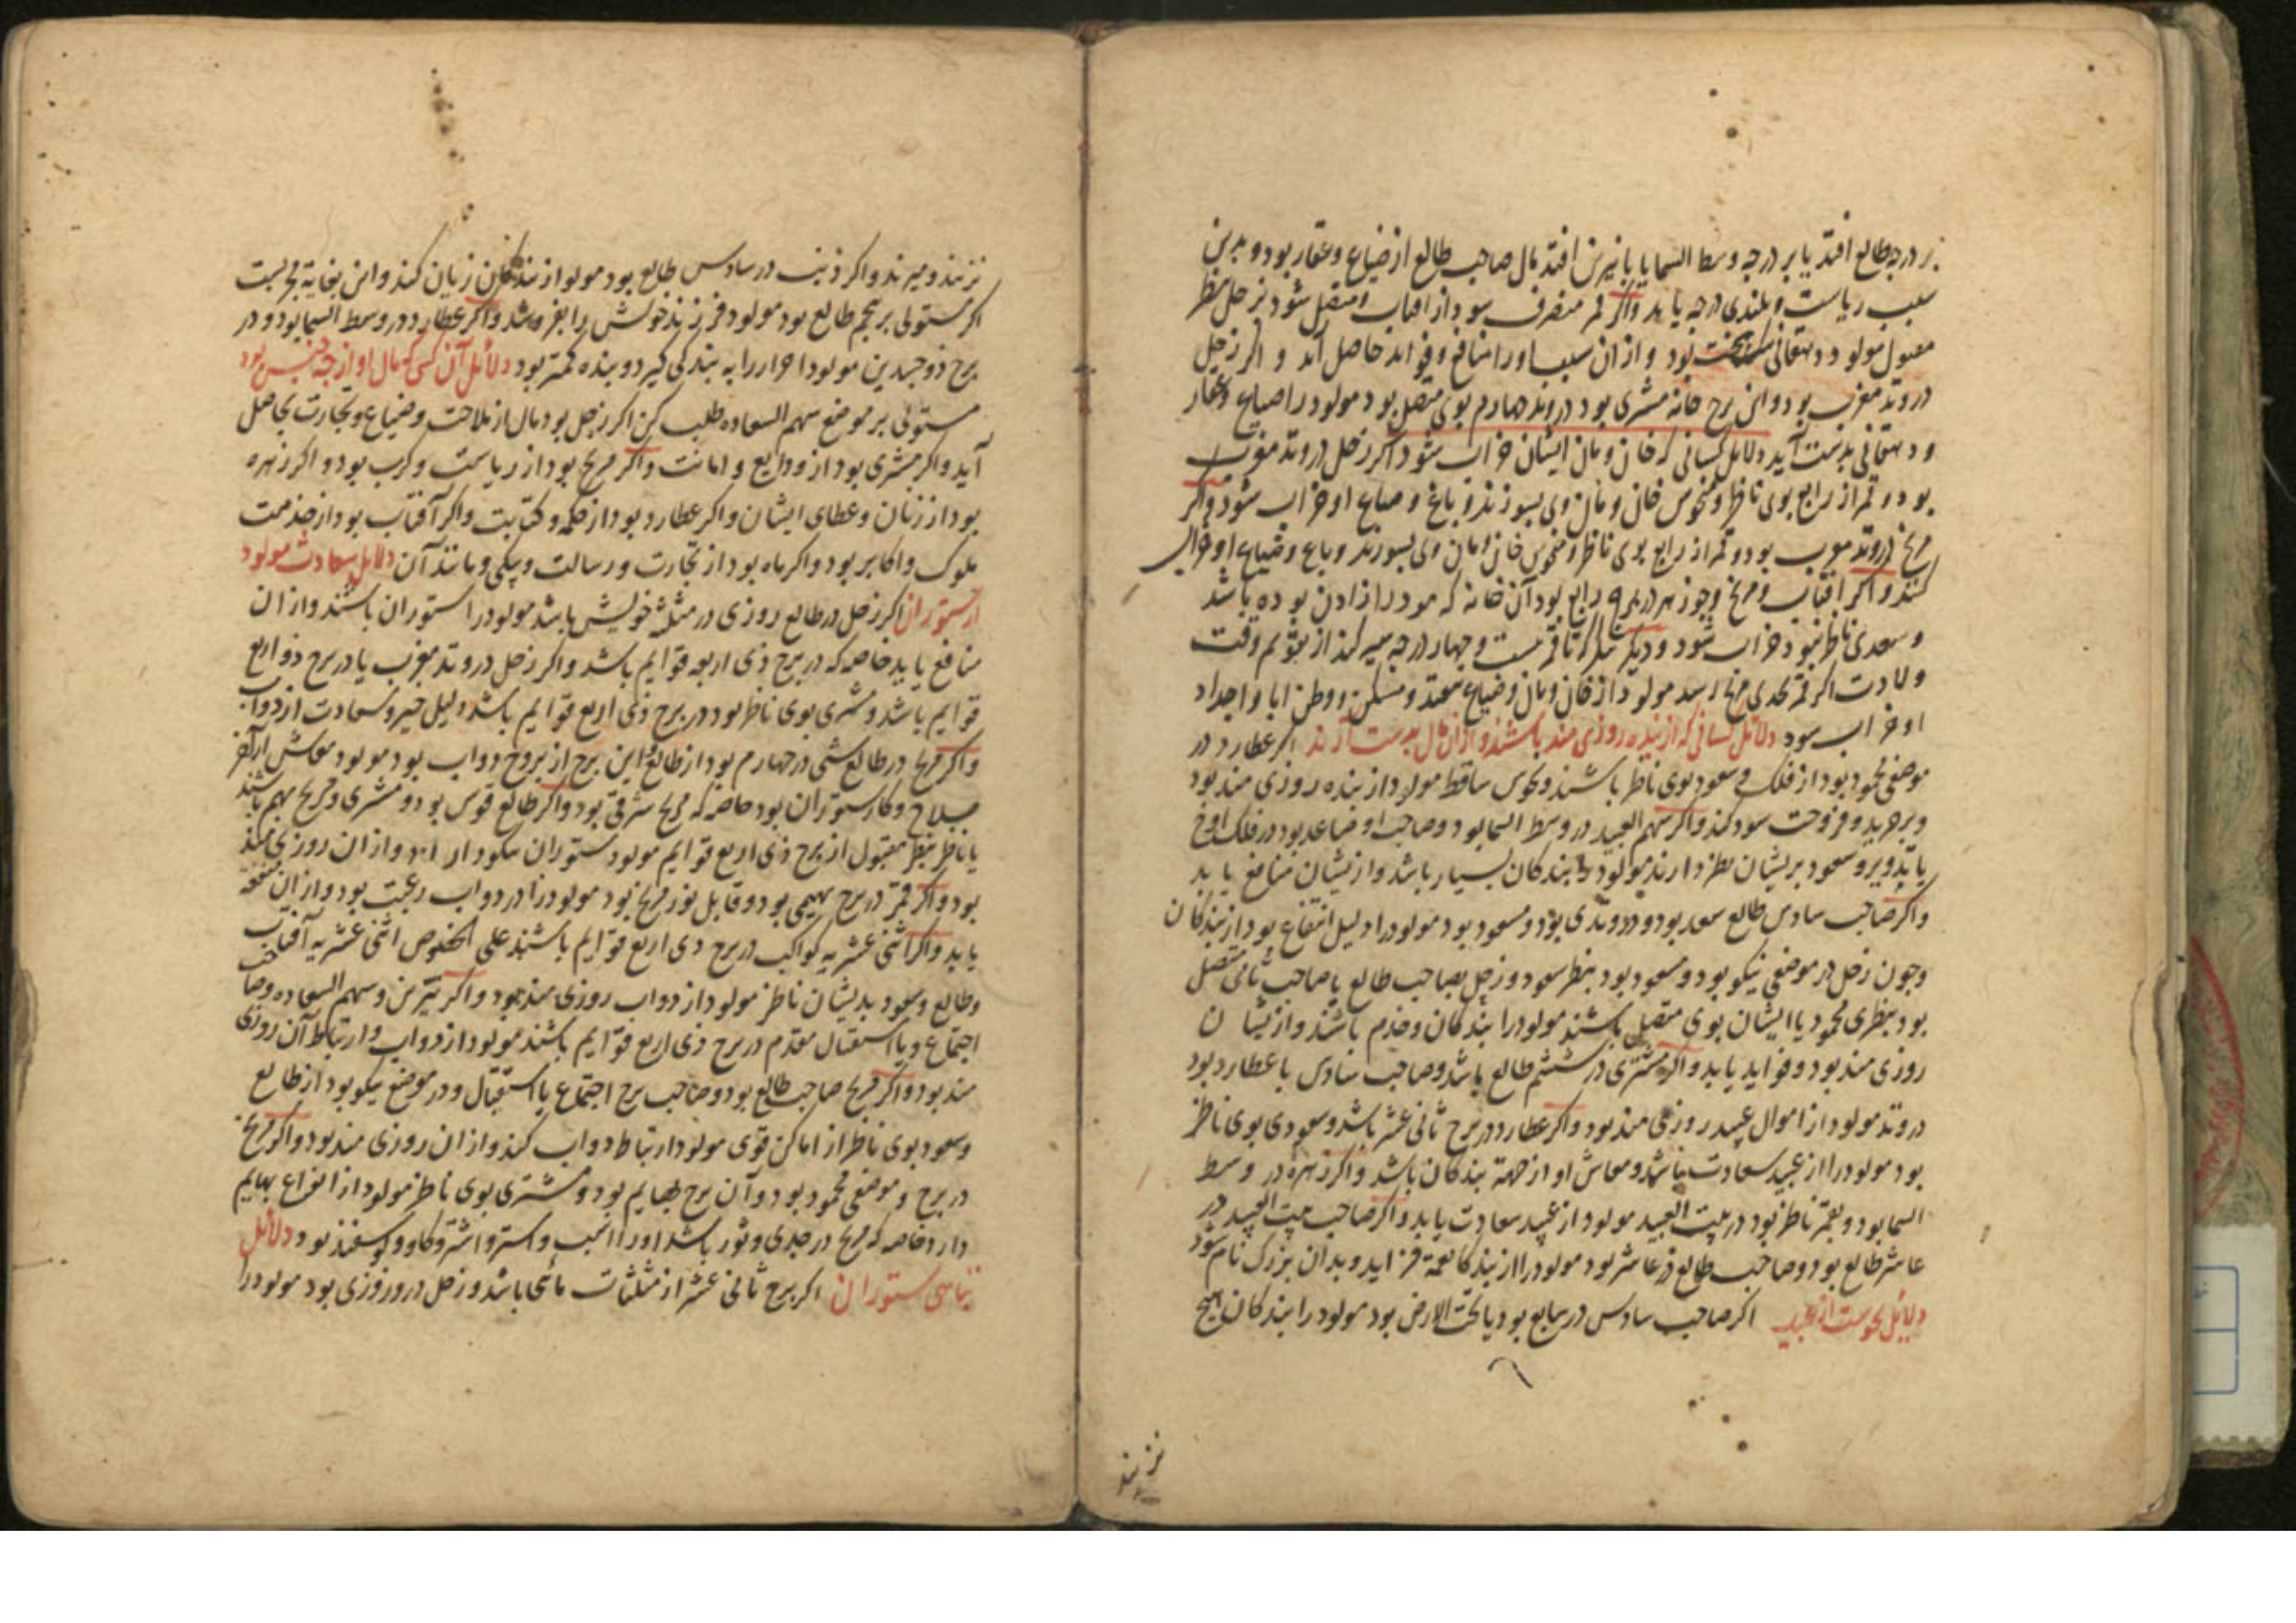 بر درجه طالع افتد یا بر درجه وسط السما یا با نیرین افتد مال صاحب طالع از ضیاع و عقار بود و بدین
سبب ریاست و بلندی درجه یابد واکر قمر منصرف بود از افتاب و متصل شود بزحل بنظر
مقبول مولود دهقانی بود و ازان سبب او را منافع و فواید حاصل آید و اکر زحل
در وتد مغرب بود و این برج خانه مشتری بود در وتد چهارم بوی متصل بود مولود را ضیاع و عقار
و دهقانی بدست آید دلایل کسانی که خان و مان ایشان خراب شود اکر زحل در وتد مغرب
بود و قمر از رابع بوی ناظر و منحوس خان و مان وی بسوزند و باغ و ضیاع او خراب شود واکر
مریخ در وتد مغرب بود و قمر از رابع بوی ناظر و منحوس خان و مان وی بسوزند و باغ و ضیاع او خراب
کنند و اکر افتاب و مریخ و جوزهر در برج رابع بود آن خانه که مولود را زادن بوده باشد
و سعدی ناظر نبود خراب شود و دیکر بنکر تا قمر بیست و چهار درجه سیر کند از تقویم وقت
ولادت اکر قمر بحدی مریخ رسد مولود از خان و مان و ضیاع بیفتد و مسکن و وطن ابا و اجداد
او خراب بود دلائل کسانی که از بنده روزی مند باشند و ازان مال بدست آرند اکر عطارد در
موضعی محمود بود از فلک و سعود بوی ناظر باشند و نحوس ساقط مولود از بنده روزی مند بود
و بر خرید و فروخت سود کند واکر سهم العبید در وسط السما بود و صاحب او صاعد بود در فلک اوج
یا تدویر و سعود بریشان نظر دارند مولود را بندکان بسیار باشد و ازیشان منافع یابد
واکر صاحب سادس طالع سعد بود و در وتدی بود و مسعود بود مولود را دلیل انتفاع بود از بندکان
وچون زحل در موضعی نیکو بود و مسعود بود بنظر سعود و زحل بصاحب طالع یا صاحب ثانی متصل
بود بنظری محمود یا ایشان بوی متصل باشند مولود را بندکان و خدم باشند و ازیشان
روزی مند بود و فواید یابد واکر مشتری در ششم طالع باشد و صاحب سادس با عطارد بود
در وتد مولود از اموال عبید روزی مند بود واکر عطارد در برج ثانی عشر باشد و سعودی بوی ناظر
بود مولود را از عبید سعادت باشد و معاش او از جهة بندکان باشد واکر زهره در وسط
السما بود و بقمر ناظر بود در بیت العبید مولود از عبید سعادت یابد واکر صاحب بیت العبید در
عاشر طالع بود و صاحب طالع در عاشر بود مولود را از بندکان نعمة فزاید و بدان بزرک نام شود
دلایل نحوست از عبید اکر صاحب سادس در سابع بود یا تحت الارض بود مولود را بندکان هیچ
نزیند
نزیند و میرند و اکر ذنب در سادس طالع بود مولود از بندکان زیان کند و این بغایة مجربست
اکر مستولی بر پنجم طالع بود مولود فرزند خویش را بفروشد واکر عطارد در وسط السما بود و در
برج ذوجسدین مولود احرار را به بندکی کیرد و بنده کمتر بود دلائل آن کسی که مال او از چه جنس بود
مستولی بر موضع سهم السعاده طلب کن اکر زحل بود مال از فلاحت و ضیاع و تجارت بحاصل
آید واکر مشتری بود از ودایع و امانت واکر مریخ بود از ریاست و حرب بود و اکر زهره
بود از زنان و عطای ایشان واکر عطارد بود از حکمه و کتابت واکر آفتاب بود از خدمت
ملوک و اکابر بود واکر ماه بود از تجارت و رسالت و پیکی و مانند آن دلایل سعادت مولود
از ستوران اکر زحل در طالع روزی در مثلثه خویش باشد مولود را ستوران باشند و ازان
منافع یابد خاصه که در برج ذی اربعه قوایم باشد واکر زحل در وتد مغرب یا در برج ذو اربع
قوایم باشد و مشتری بوی ناظر بود در برج ذی اربع قوایم باشد دلیل خیر و سعادت از دواب
واکر مریخ در طالع شبی در چهارم بود از طالع و این برج از بروج دواب بود مولود معاش از آخر
سلاح و کار ستوران بود خاصه که مریخ شرقی بود واکر طالع قوس بود و مشتری و مریخ بهم باشند
یا ناظر بنظر مقبول از برج ذی اربع قوایم مولود ستوران نیکو دارد و ازان روزی مند
بود واکر قمر در برج بهیمی بود و قابل نور مریخ بود مولود را در دواب رغبت بود و ازان منفعة
یابد واکر اثنی عشریه کواکب در برج ذی اربع قوایم باشند علی الخصوص اثنی عشریه آفتاب
وطالع و سعود بدیشان ناظر مولود از دواب روزی مند بود واکر نیرین و سهم السعاده و صاحب
اجتماع و یا استقبال مقدم در برج ذی اربع قوایم باشند مولود از دواب و ارتباط آن روزی
مند بود واکر مریخ صاحب طالع بود و صاحب برج اجتماع یا استقبال و در موضع نیکو بود از طالع
وسعود بوی ناظر از اماکن قوی مولود ارتباط دواب کند و ازان روزی مند بود واکر مریخ
در برج و موضعی محمود بود و آن برج بهایم بود و مشتری بوی ناظر مولود از انواع بهایم
دارد خاصه که مریخ در جدی و ثور باشد او را اسب و استر و اشتر و کاو و کوسفند بود دلائل
تباهی ستوران اکر برج ثانی عشر از مثلثات مائی باشد و زحل در و روزی بود مولود را